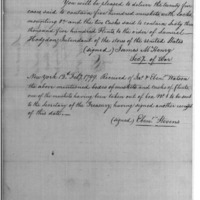 You will be pleased to deliver the twenty five
cases said to contain five hundred muskets with
and the two Casks said to contain sixty two
thousand five hundred Flints to the order of Samuel
Hodgdon Intendant of the stores of the United States
(signed) James McHenry
Secy of War
New York 13th Feby 1799 Received of Jas & Ebenr Watson
the above mentioned boxes of muskets and casks of flints
one of the muskets having been taken out of box No 1 to be sent
to the Secretary of the Treasury, having signed another receipt
of this date
(signed) Ebenr Stevens